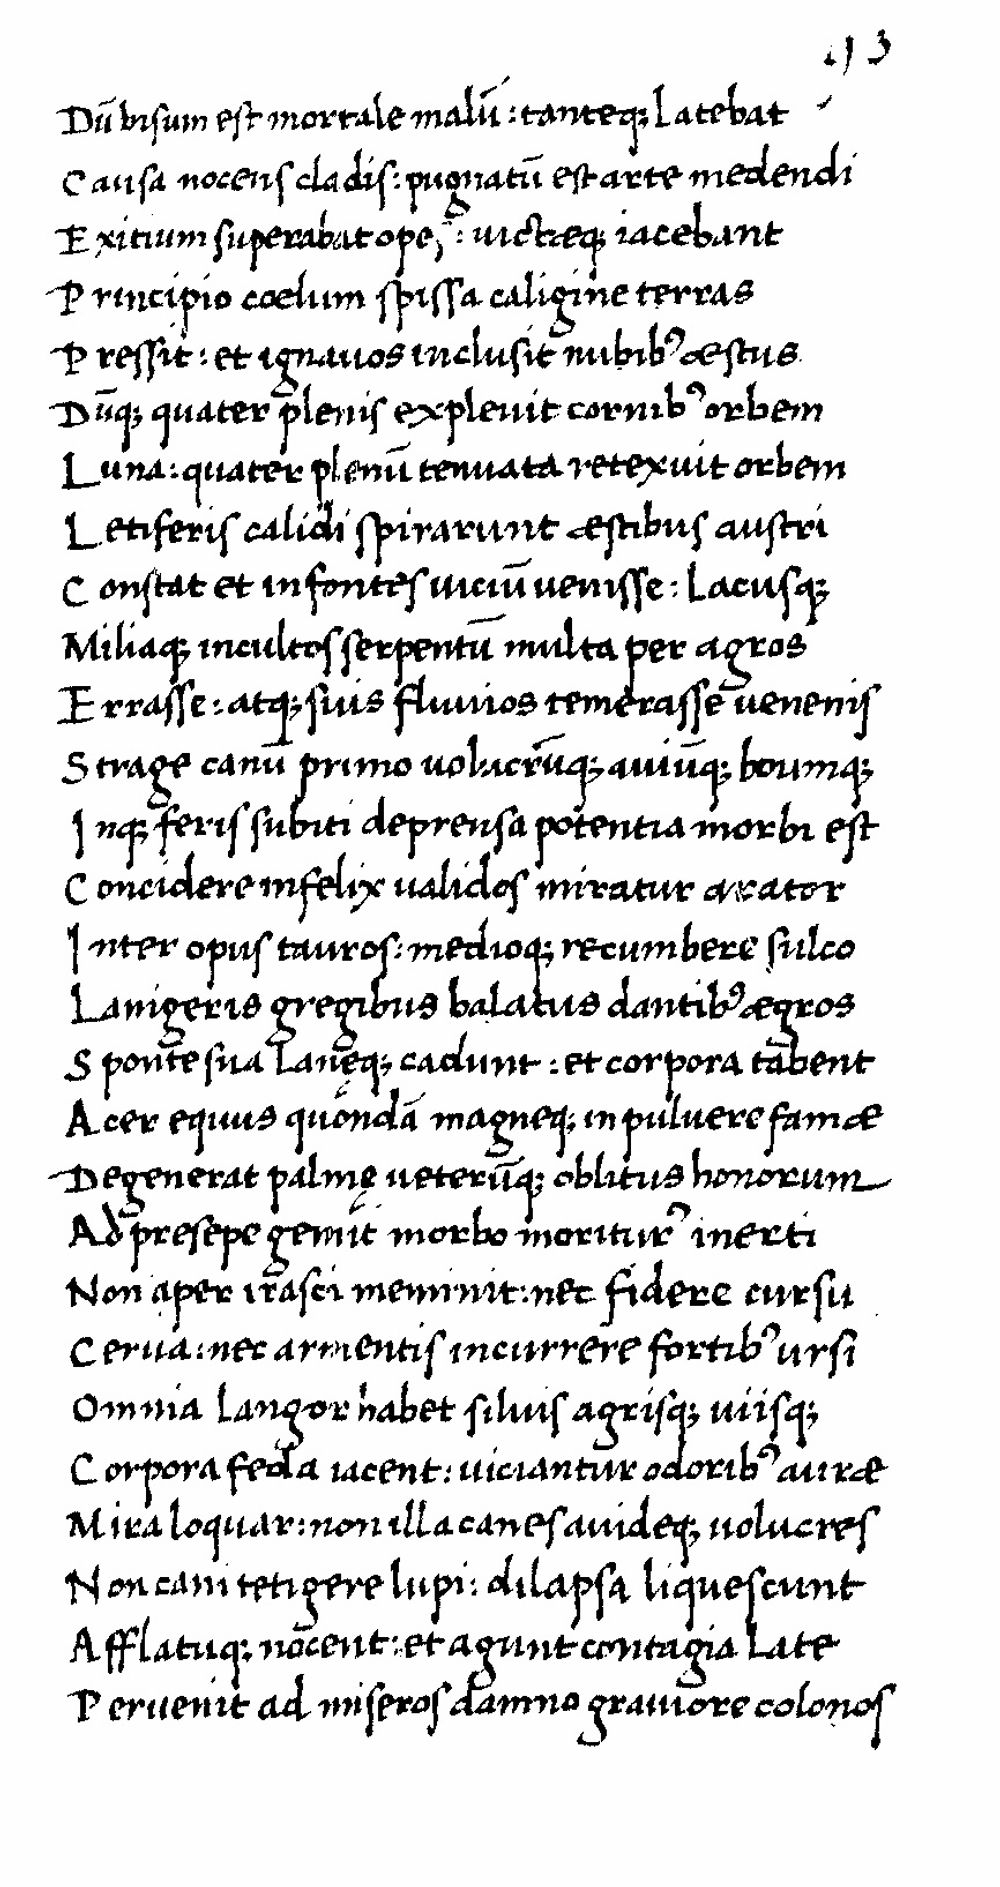 113
Dū bisum est mortale malū: tanteq; latebat
Causa nocens cladis: pugnatū est arte medendi
Exitium superabat opeʒ: uictæq; iacebant
Principio cœlum spissa caligine terras
Pressit: et ignauos inclusit nubibꝰ æstus
Dūq; quater plenis expleuit cornibꝰ orbem
Luna: quater plenū tenuata retexuit orbem
Letiferis calidi spirarunt æstibus austri
Constat et in fontes uiciū uenisse: lacusq;
Miliaq; incultos serpentū multa per agros
Errasse: atq; suis fluuios temerasse uenenis
Strage canū primo uolucrūq; auiūq; boumq;
Inq; feris subiti deprensa potentia morbi est
Concidere infelix ualidos miratur arator
Inter opus tauros: medioq; recumbere sulco
Lanigeris gregibus balatus dantibꝰ ægros
Sponte sua laneq; cadunt: et corpora tabent
Acer equus quondā magneq; in puluere famæ
Degenerat palmę ueterūq; oblitus honorum
Ad presepe gemit morbo moriturꝰ inerti
Non aper irasci meminit: nec fidere cursu
Cerua: nec armentis incurrere fortibꝰ ursi
Omnia langor habet siluis agrisq; uiisq;
Corpora feda iacent: uiciantur odoribꝰ auræ
Mira loquar: non illa canes auideq; uolucres
Non cani tetigere lupi: dilapsa liquescunt
Afflatuq; nocent: et agunt contagia late
Peruenit ad miseros damno grauiore colonos